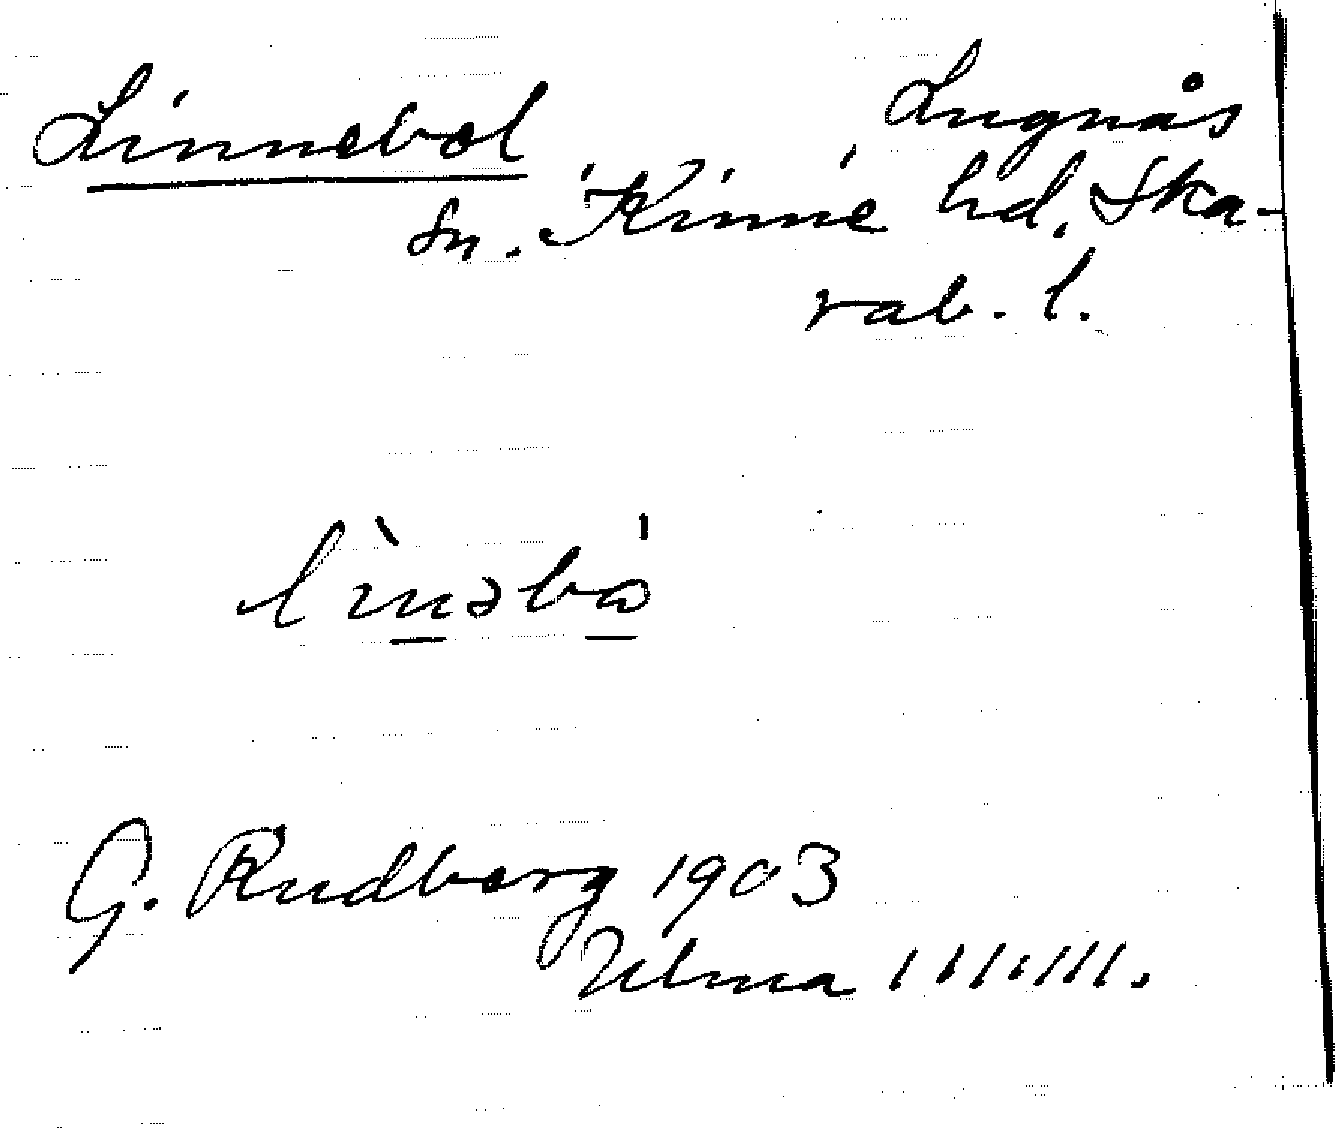 Linnebol Lugnås
sn. Kinne hd. Ska-
rab. l.
lìnəbå
G. Rudberg 1903